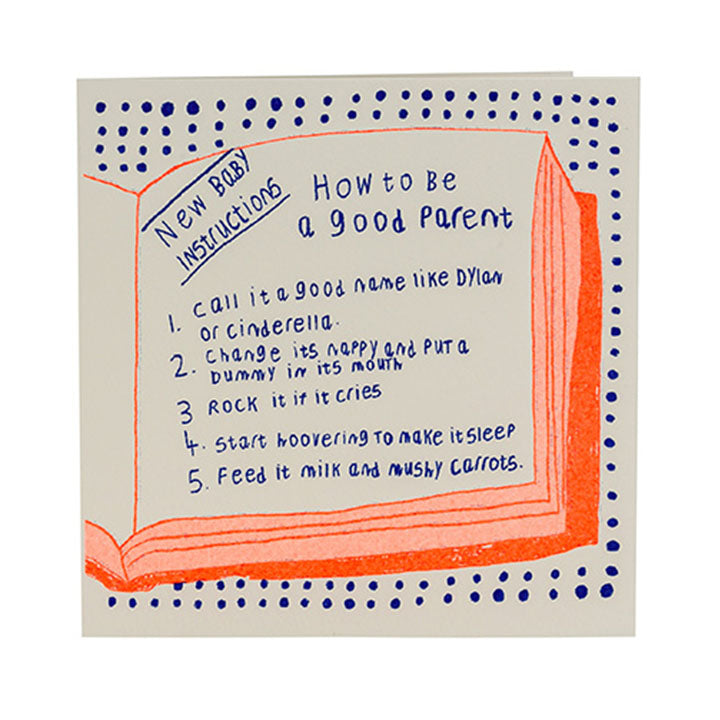 New Baby
Instructions
How to Be
a good Parent
1. Call it a good name like Dylan
or Cinderella.
2. Change its nappy and Put a
Dummy in its mouth
3 Rock it if it cries
4. Start hoovering To make it sleep
5. Feed it milk and mushy Carrots.